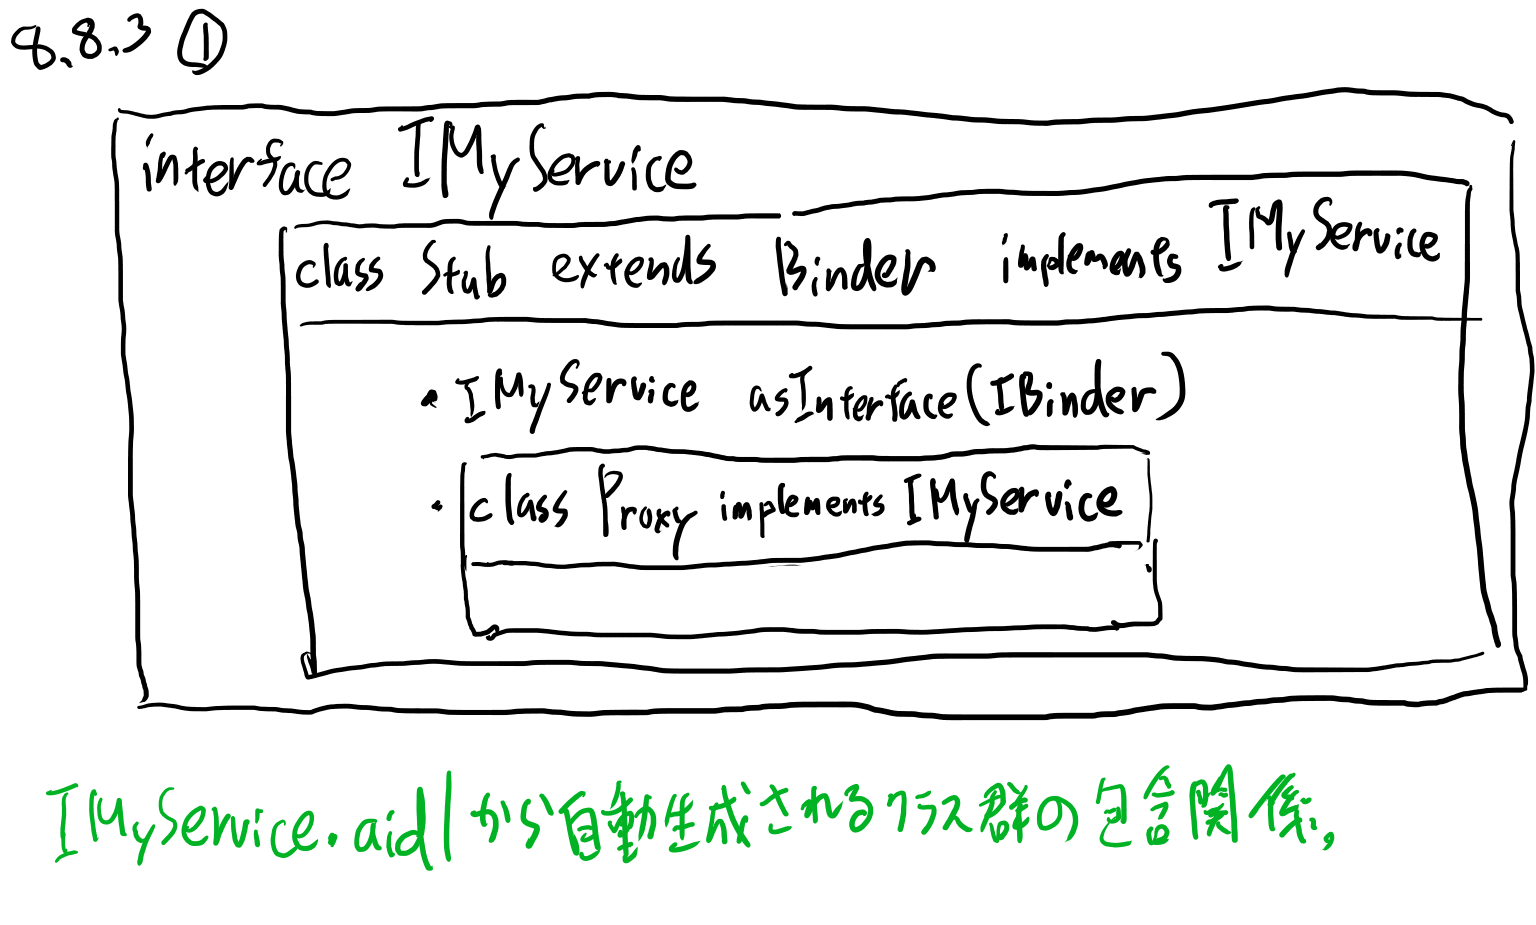 8.8.3 ①
interface IMyService
class Stub extends Binder implements IMyService
・IMyService asInterface(IBinder)
・class Proxy implements IMyService
IMyService.aidlから自動生成されるクラス群の包含関係。